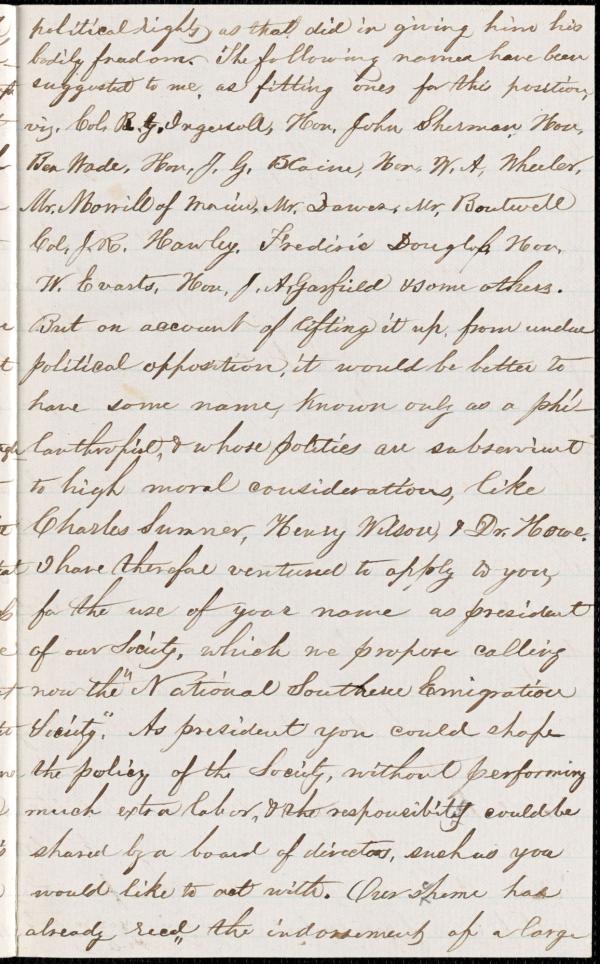 political rights, as that did in giving him his
bodily freedom. The following names have been
suggested to me, as fitting ones for this position,
viz. Col. R. G. Ingersoll, Hon. John Sherman, Hon.
Ben Wade, Hon. J. G. Blaine, Hon. W. A. Wheeler,
Mr. Morrill of Maine, Mr. Dawes, Mr. Boutwell
Col. J. R. Hawley, Frederic Douglass, Hon.
W. Evarts, Hon. J. A. Garfield & some others.
But on account of lifting it up, from undue
political opposition, it would be better to
have some name, known only as a phi-
lanthropist, & whose politics are subservient
to high moral considerations, like
Charles Sumner, Henry Wilson, & Dr. Howe.
I have therefore ventured to apply to you,
for the use of your name as president
of our Society, which we propose calling
now the "National Southern Emigration
Society". As president you could shape
the policy of the Society, without performing
much extra labor, & the responsibility could be
shared by a board of directors, such as you
would like to act with. Our sheme has
already recd,, the indorsement of a large